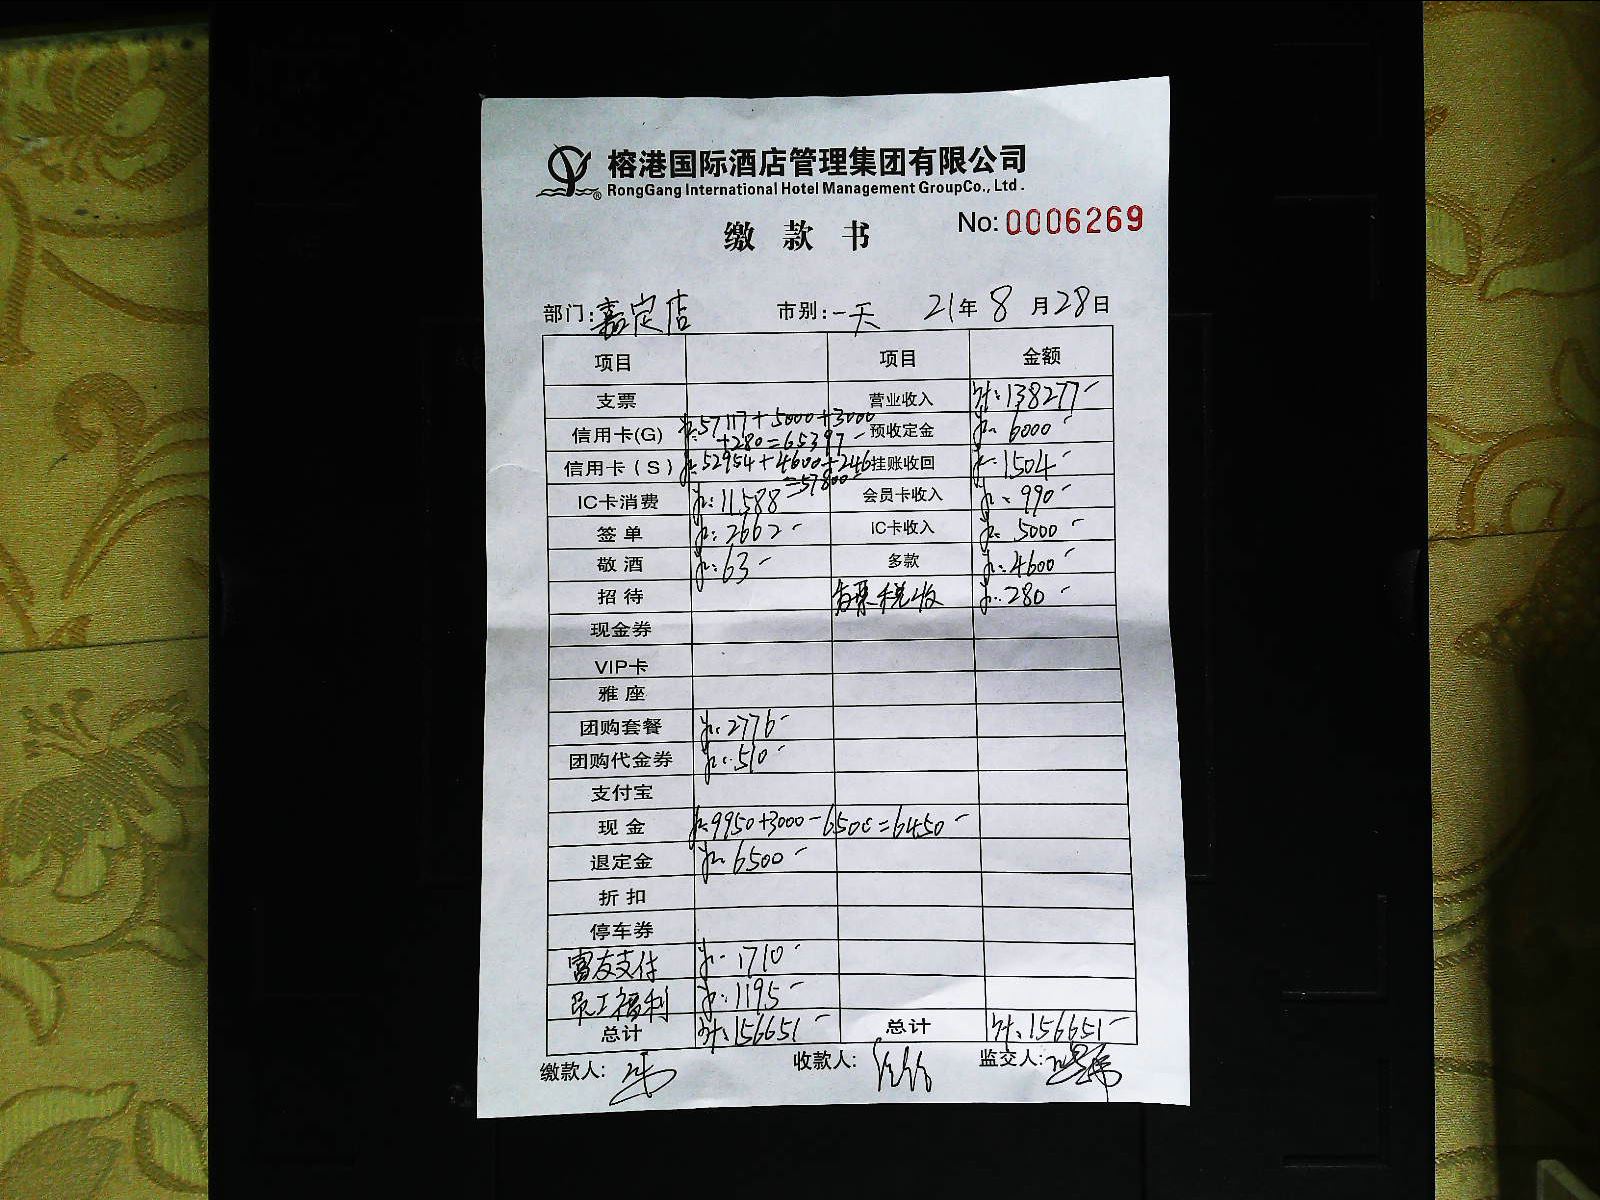 榕港国际酒店管理集团有限公司
RongGang International Hotel Management GroupCo., Ltd.
缴款书 No: 0006269
部门: 嘉定店 市别: 一天 21年 8 月 28 日
项目 项目 金额
支票 营业收入 138277-
信用卡(G) 57117+5000+3000+280=65397- 预收定金 6000-
信用卡(S) 52954+4600+246=57800- 挂账收回 1504-
IC卡消费 11588 会员卡收入 990-
签单 2662- IC卡收入 5000-
敬酒 63- 多款 4600-
招待 发票税收 280-
现金券
VIP卡
雅座
团购套餐 2776-
团购代金券 510-
支付宝
现金 9950+3000-6500=6450-
退定金 6500-
折扣
停车券
富友支付 1710-
员工福利 1195-
总计 156651- 总计 156651-
缴款人: 收款人: 监交人: